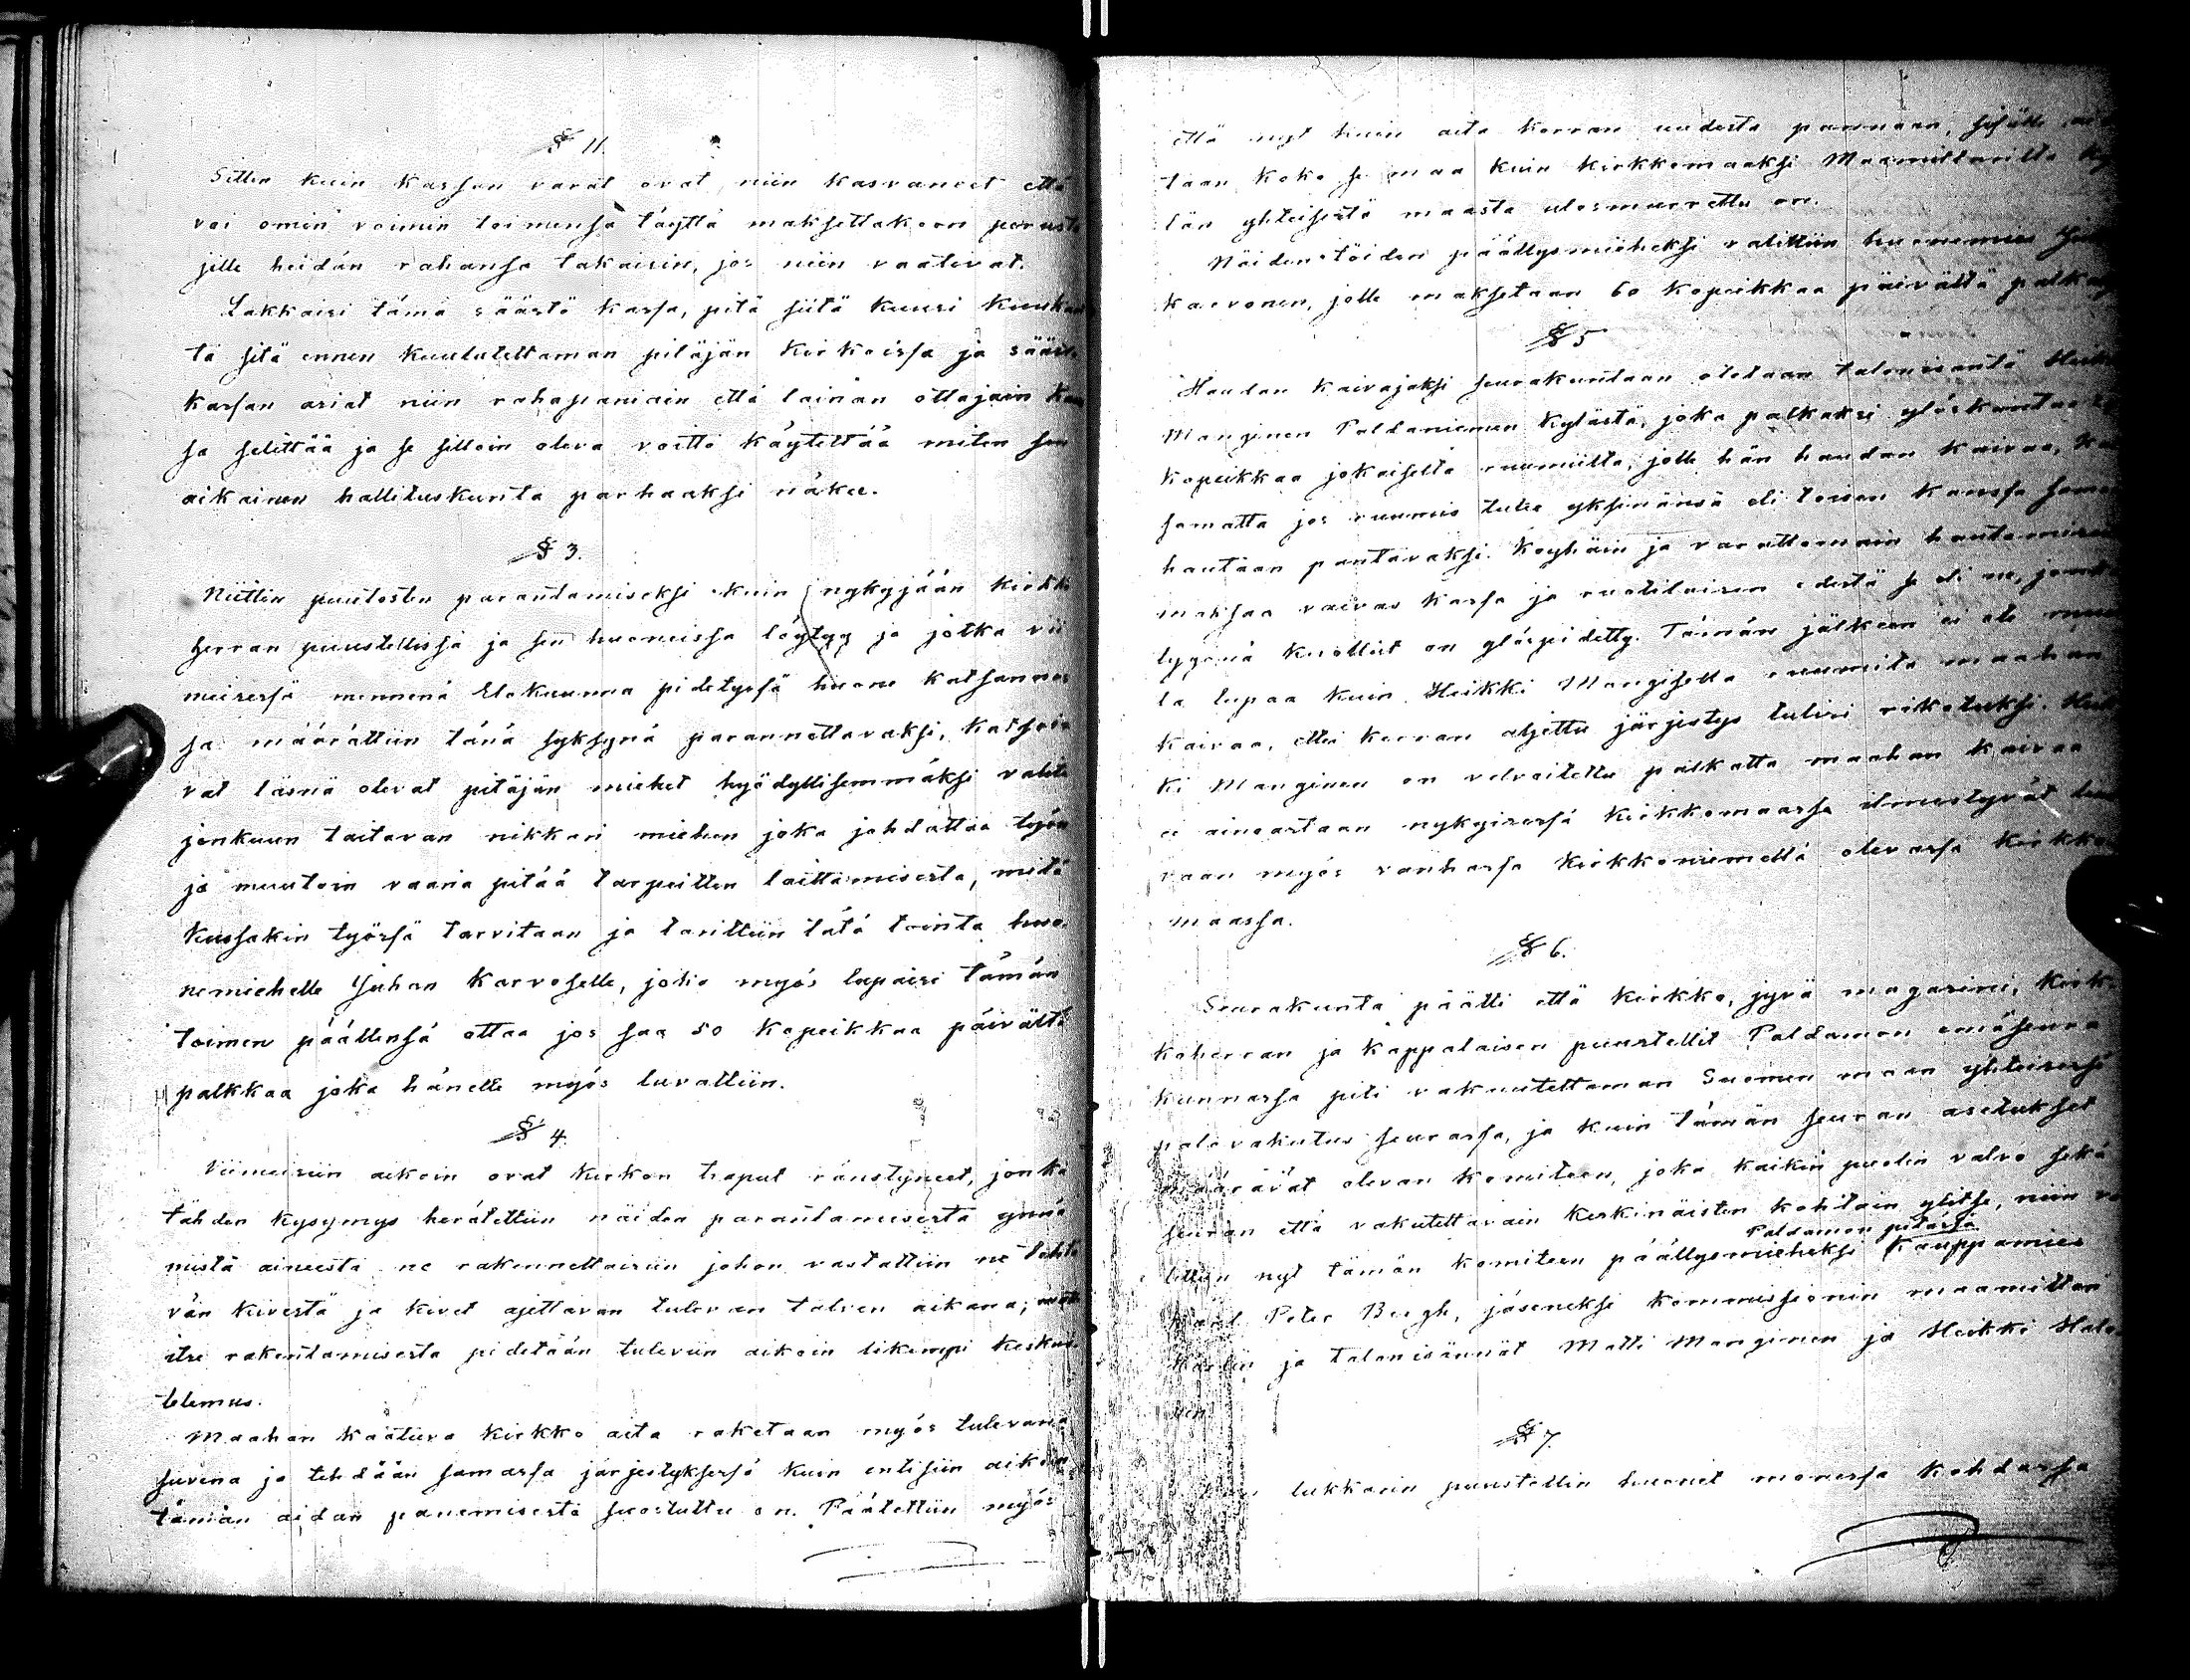 § 11.
Sitten kuin kassan varat ovat niin kasvaneet että
voi omin voimin toimensa täyttä maksettakoon perusta
jille heidän rahansa takaisin, jos niin vaativat.
Lakkaisi tämä säästö kassa, pitä siitä kuusi kuukau
ta sitä ennen kuulutettaman pitäjän kirkoissa ja säästö
kassan asiat niin rahapaniain että lainan ottajain kans
sa selittää ja se silloin oleva voitto käytettää miten sen
aikainen hallituskunta parhaaksi näkee.
§ 3.
Niitten puutosten parantamiseksi kuin nykyjään kirkko
herran puustellissa ja sen huoneissa löytyy ja jotka vii
meisessä mennenä Elokuunna pidetyssä huone katsannos
sa määrättiin tänä syksynä parannettavaksi, katsoi
vat läsnä olevat pitäjän miehet hyödyllisemmäksi valita
jonkuun taitavan nikkari miehen joka johdattaa työn
ja muutoin vaaria pitää tarpeitten laittamisesta, mitä
kussakin työssä tarvitaan ja tarittiin tätä tointa huo
nemiehelle Juhan Karvoselle, joka myös lupaisi tämän
toimen päällensä ottaa jos saa 50 kopeikkaa päivältä
palkkaa joka hänelle myös luvattiin.
§ 4.
Viimeisiin aikoin ovat kirkon traput ränstyneet, jonka
tähden kysymys herätettiin näiden parantamisesta ynnä
mistä aineesta ne rakennettaisiin johon vastattiin ne tehtä
vän kivestä ja kivet ajettavan tulevan talven aikana;
itse rakentamisesta pidetään tuleviin aikoin likempi keskus
telemus.
Maahan kaatuva kirkko aita raketaan myös tulevana
suvena ja tehdään samassa järjestyksessä kuin entisiin aikoin
tämän aidan panemisesta suostuttu on. Päätettiin myös
että nyt kuin aita kerran uudesta pannaan, sisälle
taan koko se maa kuin kirkkomaaksi Maamittarilta ky
län yhteisestä maasta ulosmurrettu on.
Näiden töiden päällysmieheksi valittiin huonemies
Karvonen, jolle maksetaan 60 kopeikkaa päivältä palkka
§ 5
Haudan kaivajaksi seurakuntaan otetaan talonisäntä Heikki
Manginen Paldaniemen kylästä, joka palkaksi ylöskantaa
kopeikkaa jokaiselta ruumiilta, jolle hän haudan kaivaa, kat
somatta jos ruumis tulee yksinänsä eli toisen kanssa samaan
hautaan pantavaksi. Köyhäin ja varattomain hautamisen
maksaa vaivas kassa ja ruotilaisen edestä se eli ne, joiden
tyynä kuollut on ylöspidetty. Tämän jälkeen ei ole muu
la lupaa kuin Heikki Mangisella ruumita maahan
kaivaa, ettei kerran aljettu järjestys tulisi rikotuksi. Heik
ki Manginen on velvoitettu palkatta maahan kaivaa
ei ainoastaan nykyisessä kirkkomaassa ilmestyvät luut
vaan myös vanhassa Kirkkoniemellä olevassa kirkko
maassa.
§ 6.
Seurakunta päätti että kirkko, jyvä magasini, kirk
koherran ja kappalaisen puustellit Paldamon emäseura
kunnassa piti vakuutettaman Suomen maan yhteisessä
palovakutus seurassa, ja kuin tämän seuran asetukset
määrävät olevan komiteen, joka kaikin puolin valvo sekä
seuran että vakutettavain keskinäisten kohtain ylitse, niin va
Paldamon pitäjässä
littiin nyt tämän komiteen päällysmieheksi Kauppamies
Karl Peter Bergh, jäseneksi kommissionin maamittari
ja talonisännät Matti Manginen ja Heikki Halo
nen.
§ 7.
lukkarin puustellin huoneet monessa kohdassa